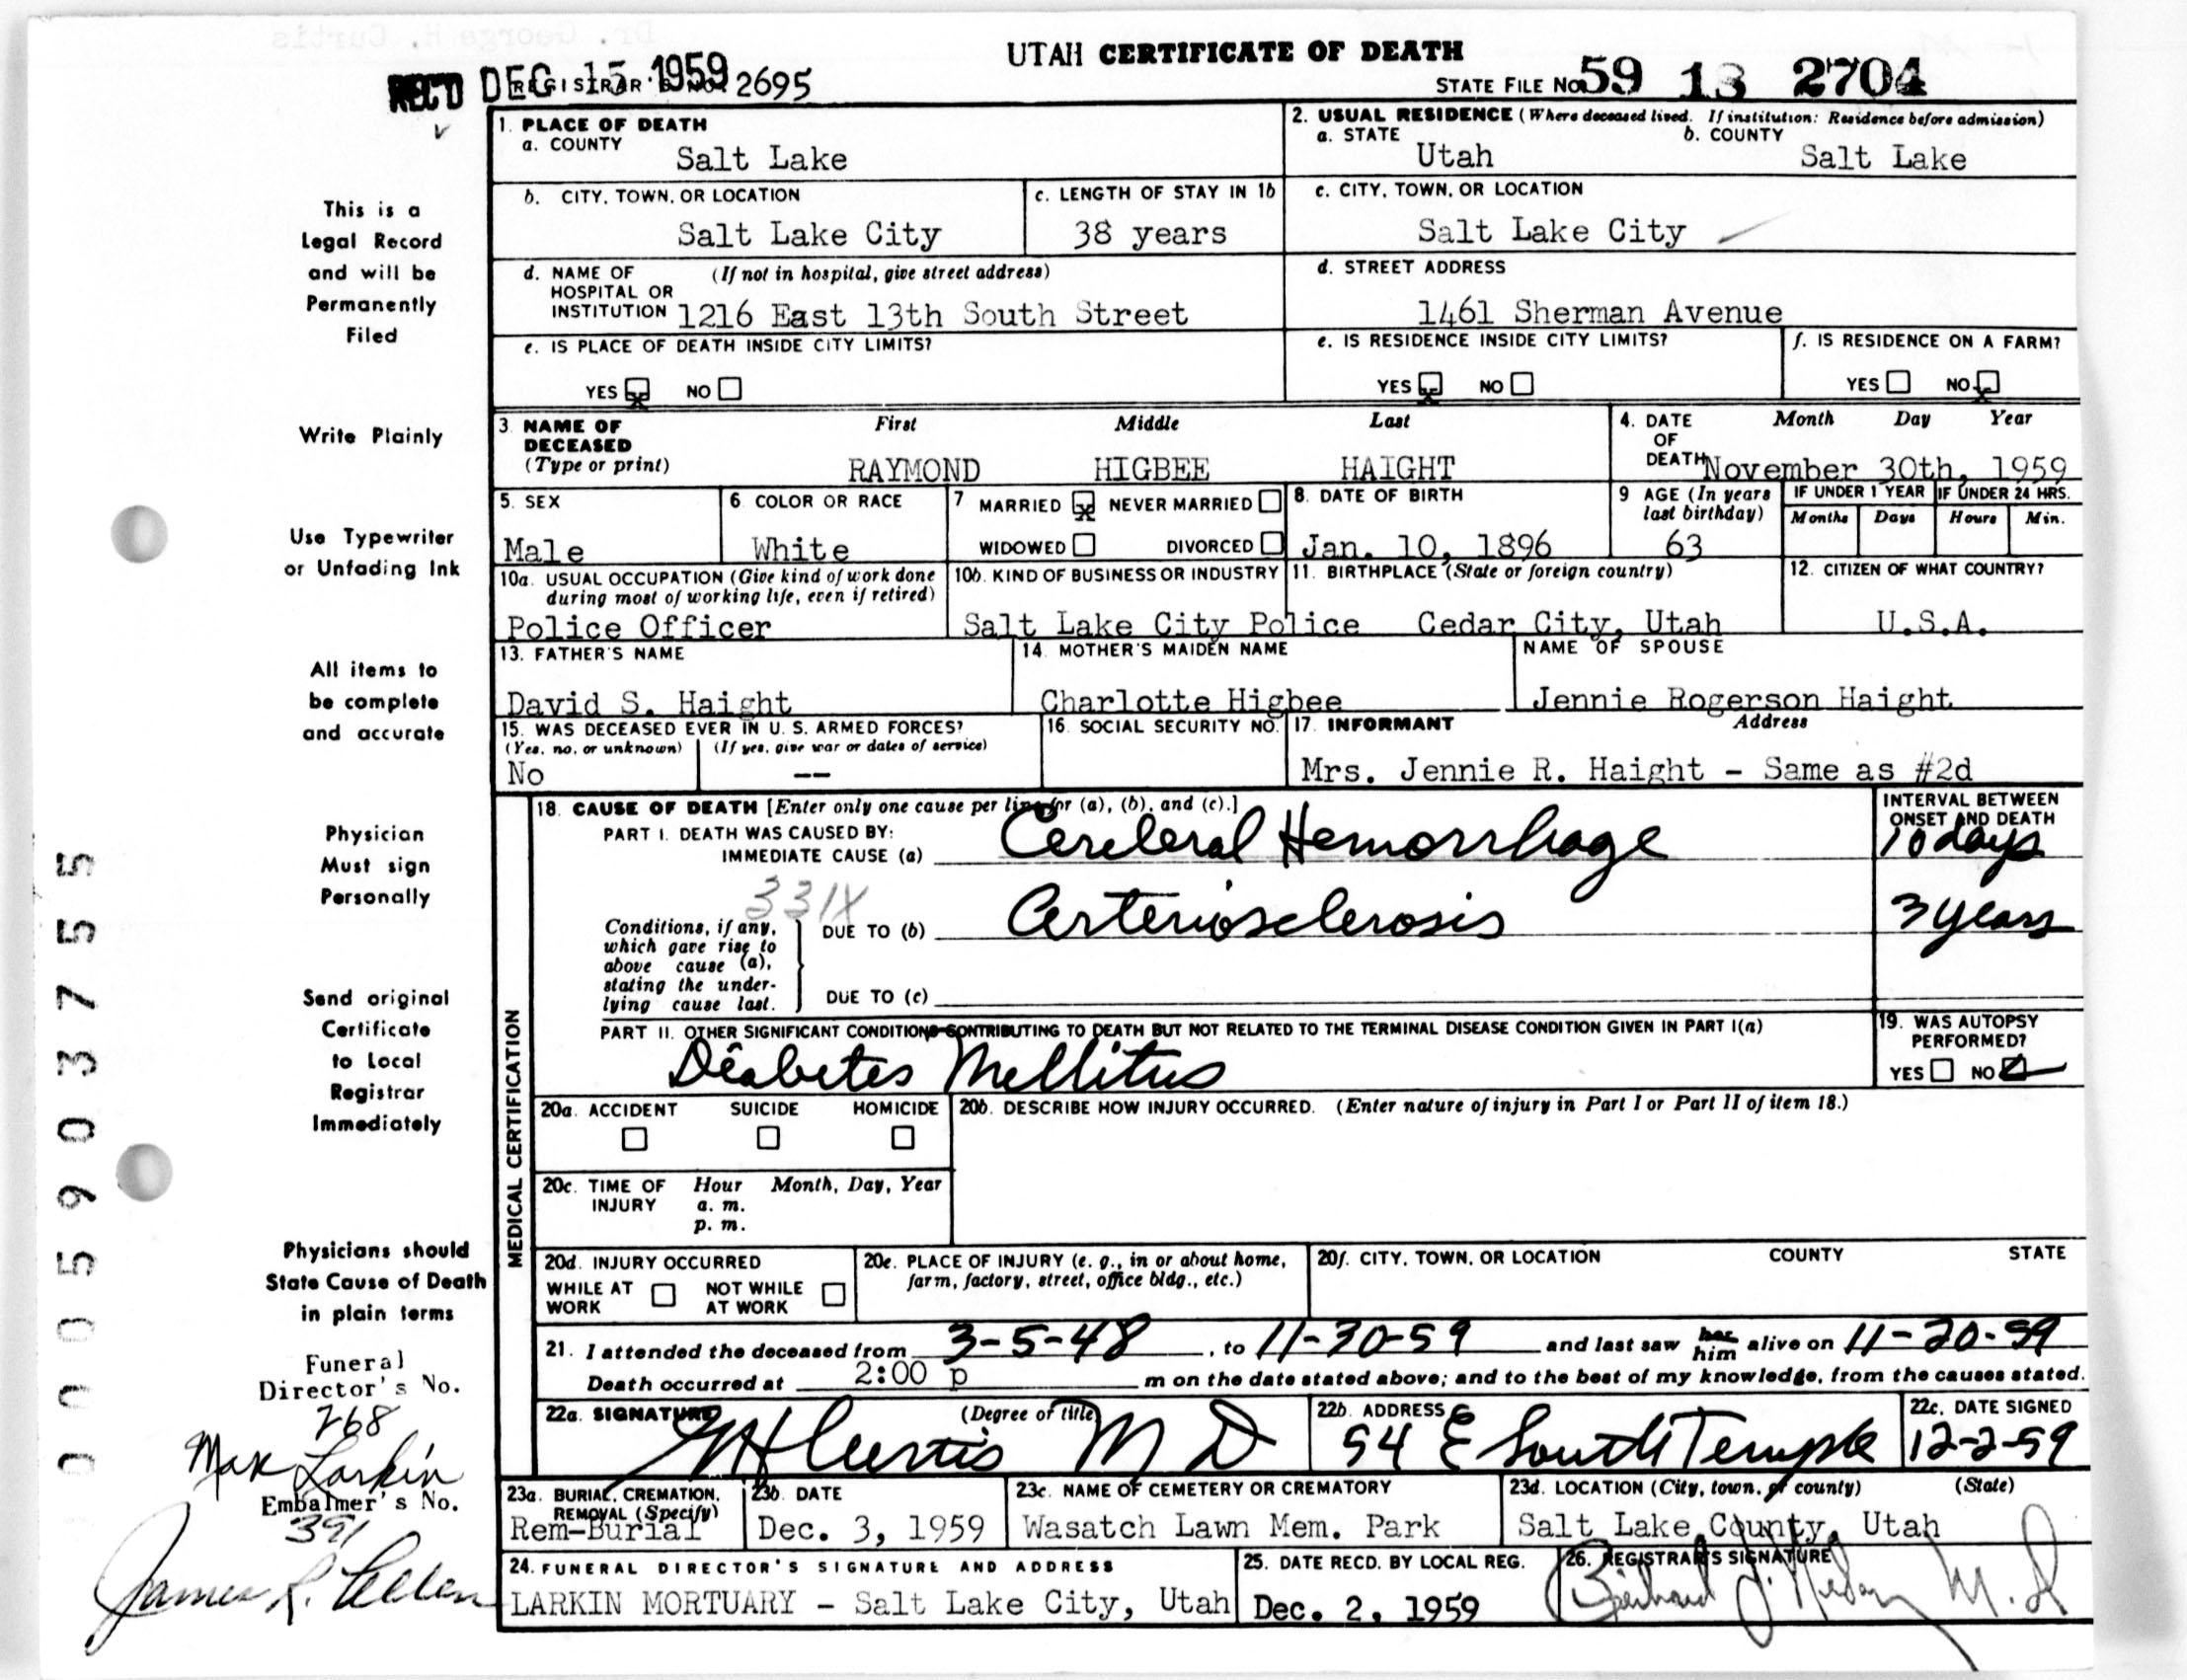 UTAH CERTIFICATE OF DEATH
REC'D DEC 15 1959
REGISTRAR'S NO. 2695
STATE FILE NO. 59 13 2704
This is a
Legal Record
and will be
Permanently
Filed
Write Plainly
Use Typewriter
or Unfading Ink
All items to
be complete
and accurate
Physician
Must sign
Personally
Send original
Certificate
to Local
Registrar
Immediately
Physicians should
State Cause of Death
in plain terms
Funeral
Director's No.
268
Max Larkin
Embalmer's No.
391
James R.
0005903755
1. PLACE OF DEATH
a. COUNTY
Salt Lake
2. USUAL RESIDENCE (Where deceased lived. If institution: Residence before admission)
a. STATE
Utah
b. COUNTY
Salt Lake
b. CITY, TOWN, OR LOCATION
Salt Lake City
c. LENGTH OF STAY IN 1b
38 years
c. CITY, TOWN, OR LOCATION
Salt Lake City
d. NAME OF (If not in hospital, give street address)
HOSPITAL OR
INSTITUTION 1216 East 13th South Street
d. STREET ADDRESS
1461 Sherman Avenue
e. IS PLACE OF DEATH INSIDE CITY LIMITS?
YES X NO
e. IS RESIDENCE INSIDE CITY LIMITS?
YES X NO
f. IS RESIDENCE ON A FARM?
YES NO X
3. NAME OF
DECEASED
(Type or print)
First Middle Last
RAYMOND HIGBEE HAIGHT
4. DATE
OF
DEATH
Month Day Year
November 30th, 1959
5. SEX
Male
6. COLOR OR RACE
White
7 MARRIED X NEVER MARRIED
WIDOWED DIVORCED
8. DATE OF BIRTH
Jan. 10, 1896
9 AGE (In years
last birthday)
63
IF UNDER 1 YEAR
Months Days
IF UNDER 24 HRS.
Hours Min.
10a. USUAL OCCUPATION (Give kind of work done
during most of working life, even if retired)
Police Officer
10b. KIND OF BUSINESS OR INDUSTRY
Salt Lake City Police
11. BIRTHPLACE (State or foreign country)
Cedar City, Utah
12. CITIZEN OF WHAT COUNTRY?
U.S.A.
13. FATHER'S NAME
David S. Haight
14. MOTHER'S MAIDEN NAME
Charlotte Higbee
NAME OF SPOUSE
Jennie Rogerson Haight
15. WAS DECEASED EVER IN U. S. ARMED FORCES?
(Yes, no, or unknown) (If yes, give war or dates of service)
No --
16. SOCIAL SECURITY NO.
17. INFORMANT Address
Mrs. Jennie R. Haight - Same as #2d
MEDICAL CERTIFICATION
18. CAUSE OF DEATH [Enter only one cause per line for (a), (b), and (c).]
PART I. DEATH WAS CAUSED BY:
IMMEDIATE CAUSE (a) Cerebral Hemorrhage
INTERVAL BETWEEN
ONSET AND DEATH
10 days
331X
Conditions, if any,
which gave rise to
above cause (a),
stating the under-
lying cause last.
DUE TO (b) Arteriosclerosis
3 years
DUE TO (c)
PART II. OTHER SIGNIFICANT CONDITIONS CONTRIBUTING TO DEATH BUT NOT RELATED TO THE TERMINAL DISEASE CONDITION GIVEN IN PART I(a)
Diabetes Mellitus
19. WAS AUTOPSY
PERFORMED?
YES NO
20a. ACCIDENT SUICIDE HOMICIDE
20b. DESCRIBE HOW INJURY OCCURRED. (Enter nature of injury in Part I or Part II of item 18.)
20c. TIME OF Hour Month, Day, Year
INJURY a. m.
p. m.
20d. INJURY OCCURRED
WHILE AT NOT WHILE
WORK AT WORK
20e. PLACE OF INJURY (e. g., in or about home,
farm, factory, street, office bldg., etc.)
20f. CITY, TOWN, OR LOCATION COUNTY STATE
21. I attended the deceased from 3-5-48, to 11-30-59 and last saw her him alive on 11-20-59
Death occurred at 2:00 p m on the date stated above; and to the best of my knowledge, from the causes stated.
22a. SIGNATURE (Degree or title)
G H Curtis M D
22b. ADDRESS
54 E South Temple
22c. DATE SIGNED
12-2-59
23a. BURIAL, CREMATION,
REMOVAL (Specify)
Rem-Burial
23b. DATE
Dec. 3, 1959
23c. NAME OF CEMETERY OR CREMATORY
Wasatch Lawn Mem. Park
23d. LOCATION (City, town, or county) (State)
Salt Lake County, Utah
24. FUNERAL DIRECTOR'S SIGNATURE AND ADDRESS
LARKIN MORTUARY - Salt Lake City, Utah
25. DATE RECD. BY LOCAL REG.
Dec. 2, 1959
26. REGISTRAR'S SIGNATURE
M.D.